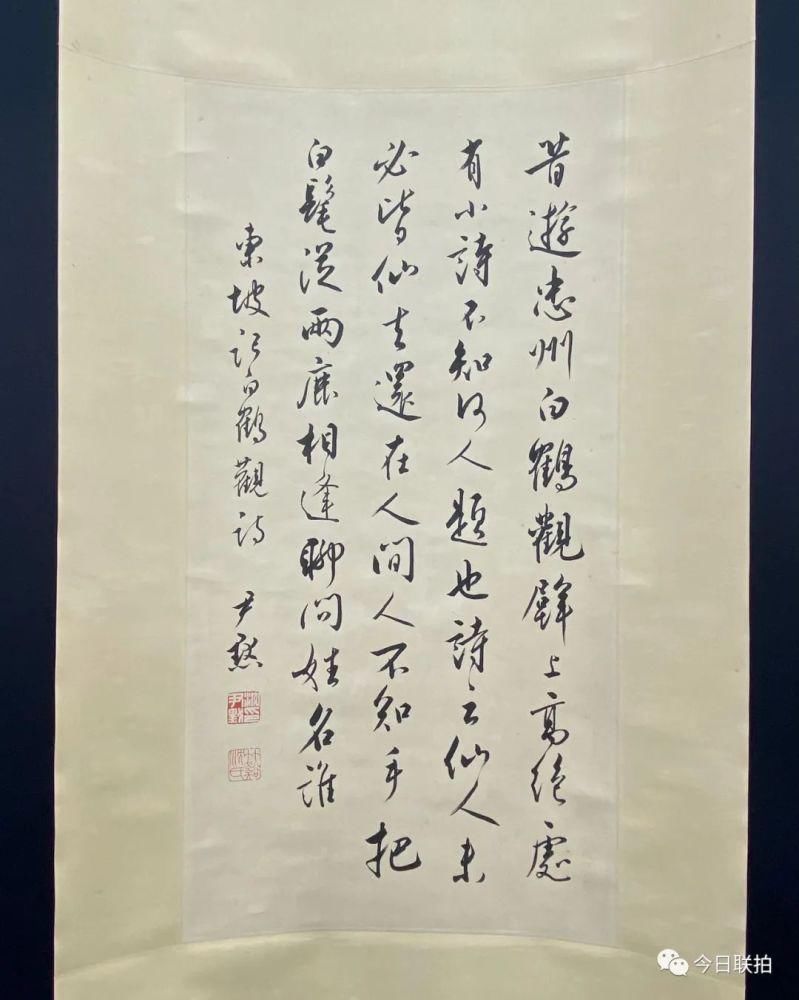 昔遊忠州白鶴觀壁上高絕處
有小詩不知何人題也詩云仙人未
必皆仙去還在人間人不知手把
白髦從兩鹿相逢聊問姓名誰
東坡記白鶴觀詩 尹默
竹谿沈氏
今日联拍